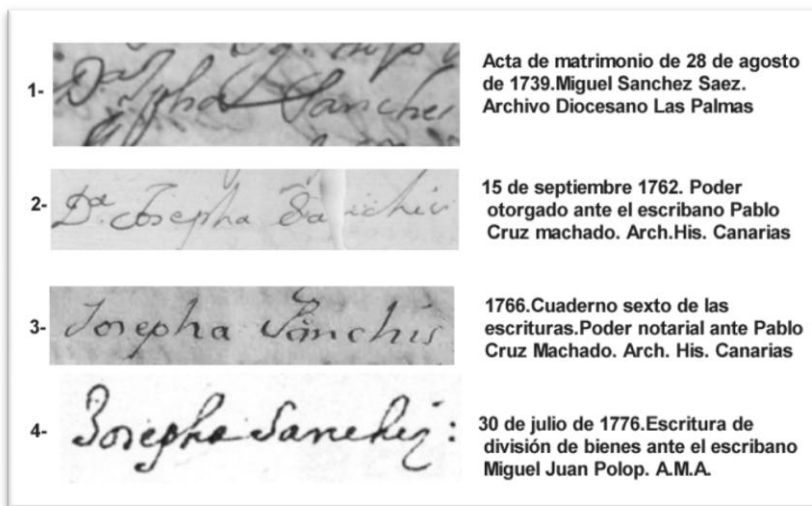 1-
Dª Jpha Sanches
Acta de matrimonio de 28 de agosto
de 1739.Miguel Sanchez Saez.
Archivo Diocesano Las Palmas
2-
Dª. Josepha Sanchis
15 de septiembre 1762. Poder
otorgado ante el escribano Pablo
Cruz machado. Arch.His. Canarias
3-
Josepha Sanchis
1766.Cuaderno sexto de las
escrituras.Poder notarial ante Pablo
Cruz Machado. Arch. His. Canarias
4-
Josepha Sanchiz:
30 de julio de 1776.Escritura de
división de bienes ante el escribano
Miguel Juan Polop. A.M.A.